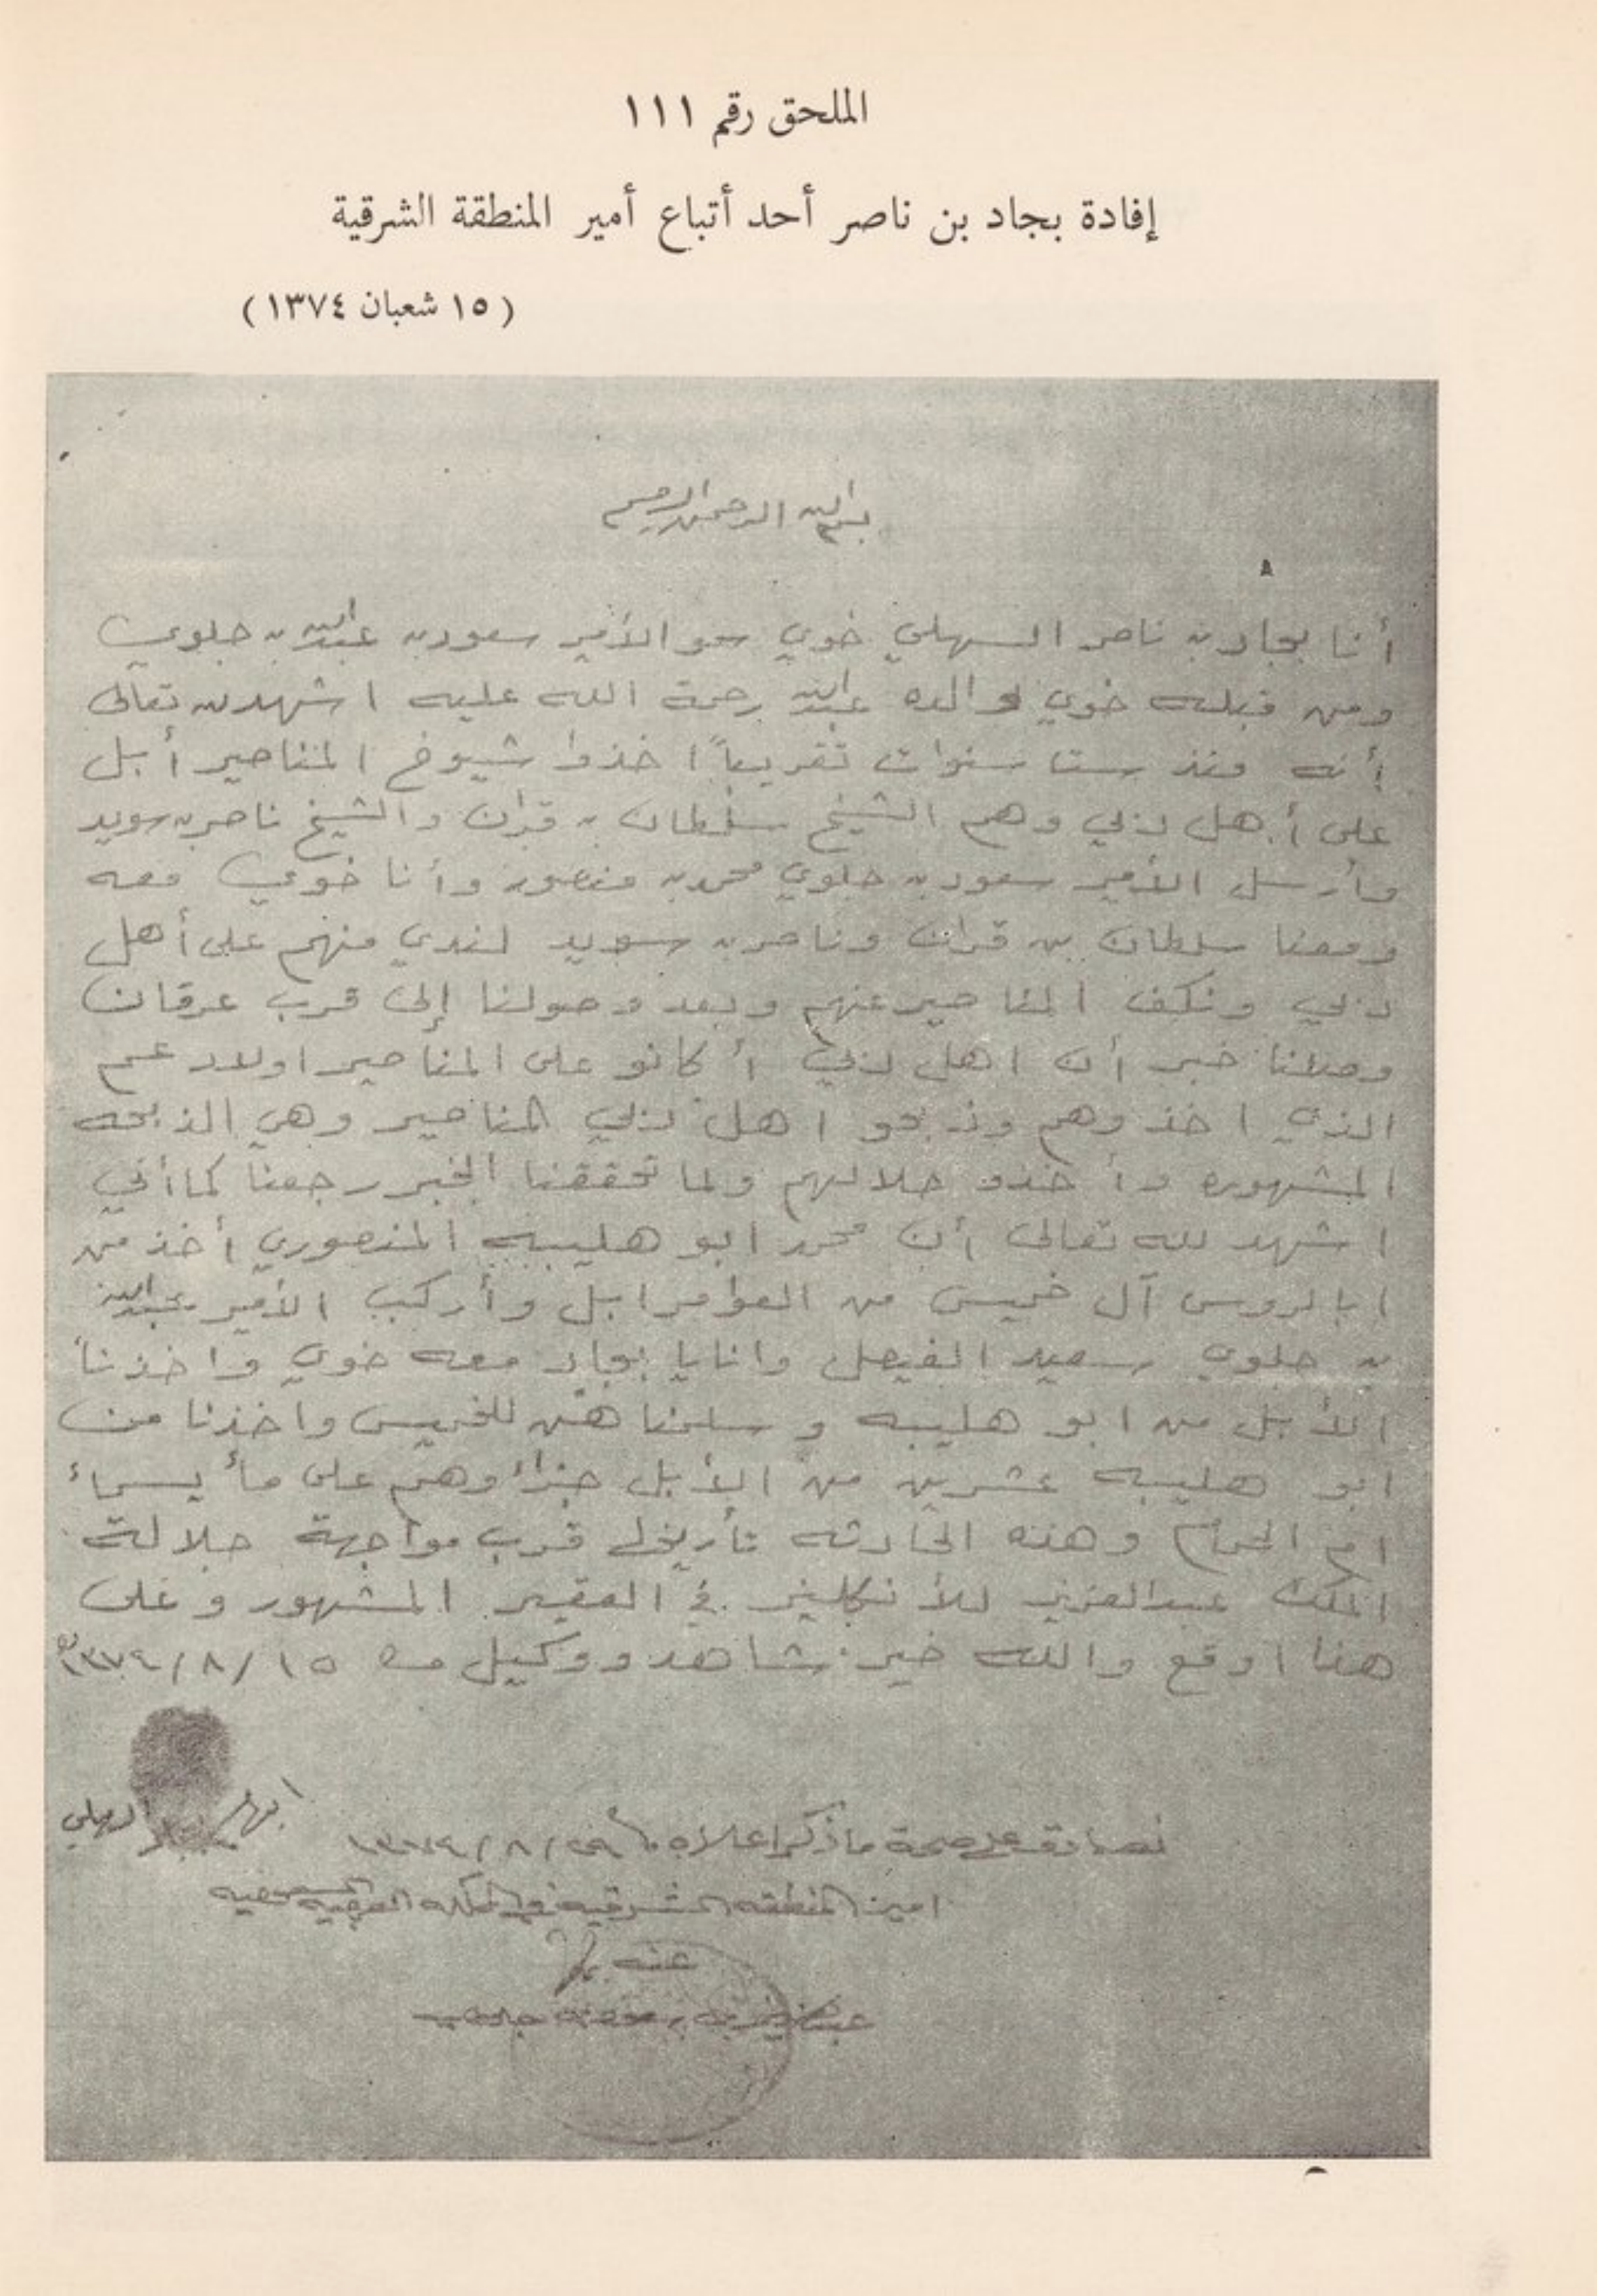 الملحق رقم ١١١
إفادة بجاد بن ناصر أحد أتباع أمير المنطقة الشرقية
( ١٥ شعبان ١٣٧٤ )
بسم الله الرحمن الرحيم
أنا بجاد بن ناصر السهلي خوي سمو الأمير سعود بن عبدالله بن جلوي
ومن قبله خوي لوالده عبدالله رحمة الله عليه اشهد لله تعالى
أنه منذ ست سنوات تقريباً اخذوا شيوخ المناصير أبل
على أهل دبي وهم الشيخ سلطان بن قران والشيخ ناصر بن سويد
وأرسل الأمير سعود بن جلوي محمد بن منصور وأنا خوي معه
ومعنا سلطان بن قران وناصر بن سويد لندي منهم على أهل
دبي ونكف المناصير عنهم وبعد وصولنا إلى قرب عرقان
وصلنا خبر أن اهل دبي أكانو على المناصير اولاد عم
الذي اخذوهم وذبحو اهل دبي المناصير وهي الذبحه
المشهوره وأخذو حلالهم ولما تحققنا الخبر رجعنا كما أني
اشهد لله تعالى أن محمد ابو هليبه المنصوري أخذ من
ابالروس آل خميس من العوامر ابل وأركب الأمير عبدالله
بن جلوي سعيد الفيصل وانا يا بجاد معه خوي واخذنا
الأبل من ابو هليبه و سلمناهن للخميس واخذنا من
ابو هليبه عشرين من الأبل جزاء وهم على ماء يسماء
ام الحمام وهذه الحادثه تأريخها قرب مواجهة جلالة
الملك عبدالعزيز للأنكليز في العقير المشهور وعلى
هذا اوقع والله خير شاهد ووكيل ١٥/٨/١٣٧٤
السهلي
نصادق على صحة ما ذكر اعلاه ٢٩/٨/١٣٧٤
امير المنطقه الشرقيه في المملكه العربيه السعوديه
عنه